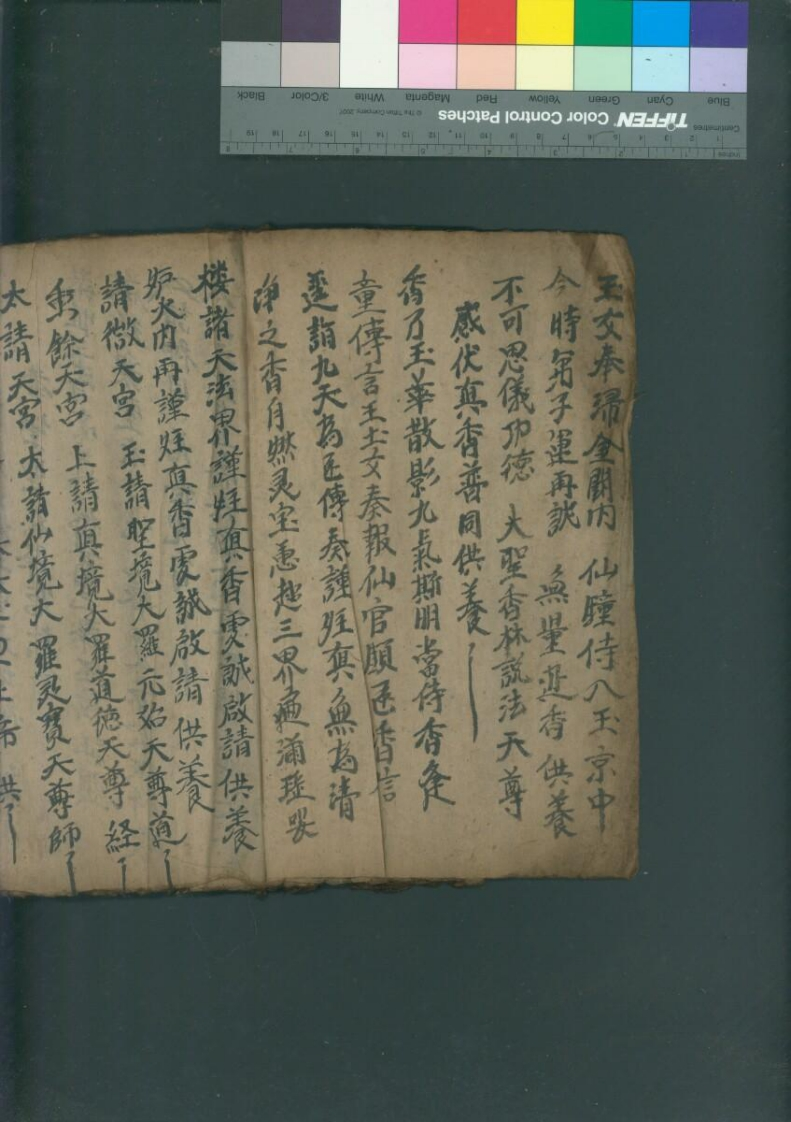 玉女奉掃金闕內 仙瞳侍入玉京中
今時弟子運再誠 無量進香供養
不可思儀功德 大聖香林說法天尊
感伏真香普同供養
香乃玉華散影九炁斯明當侍香逢
童傳言王土女奏報仙官願正香信
逕詣九天為臣傳奏謹炷真無為清
淨之香自然灵宝惠超三界遍滿瑶
楼諸天法界謹炷真香虔誠啟請供養
炉火內再謹炷真香虔誠啟請供養
請微天宮 玉請聖境大羅元始天尊道
餘天宮 上請真境大羅道德天尊 経
太請天宮 太請仙境大羅灵寶天尊師
供
Centimetres
1 2 3 4 5 6 7 8 9 10 11 12 13 14 15 16 17 18 19
Inches
TIFFEN Color Control Patches
© The Tiffen Company, 2007
Blue Cyan Green Yellow Red Magenta White 3/Color Black